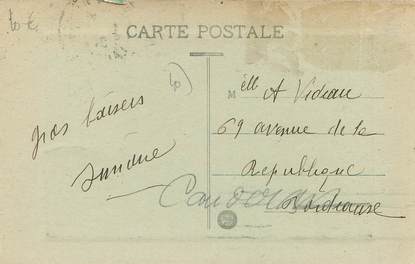 CARTE POSTALE
gros baisers
Simone
Mell A Videau
69 avenue de la
République
Bordeaux
Caudéran